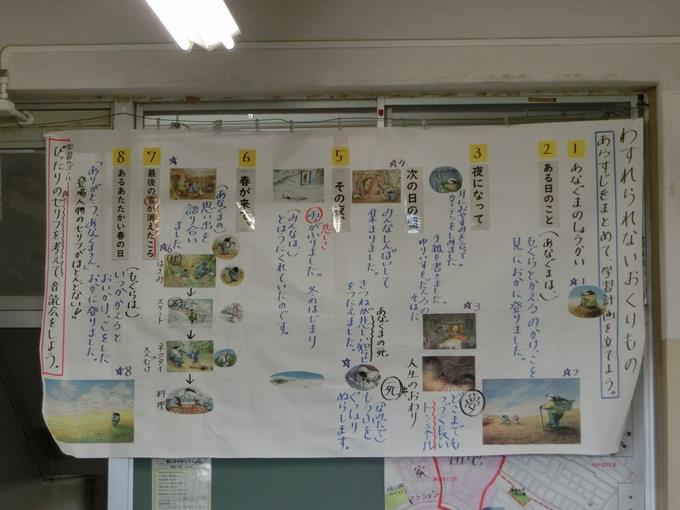 わすれられないおくりもの
あらすじをまとめて、学習計画を立てよう。
1
あなぐまのしょうかい
2
ある日のこと
(あなぐまは、)
もぐらとかえるのかけっこを
見におかに登りました。
3
夜になって
月におやすみをいって
カーテンをしめました
手紙を書きました
ゆりいすをだんろのそばに
夢
どこまでも
つづく長い
トンネル
人生のおわり
死
次の日の朝
みんなしんぱいして
集まりました。
きつねが悲しい知らせ
をつたえました。
あなぐまの死
(なみだで)
もうふを
ぐっしょり
ぬらします。
5
その夜
雪がふりました。冬のはじまり
(みんなは、)
とほうにくれていたのです。
6
春が来て
(あなぐまの)
思い出を
語り合い
ました
はさみ
スケート
ネクタイ
料理
7
最後の雪が消えたころ
8
あるあたたかい春の日
(もぐらは、)
いつかかえると
おいかけっこをした
おかに登りました。
「ありがとう、あなぐまさん。」
登場人物のセリフがほとんどない!
学習のゴール
ぴったりのセリフを考えて、音読会をしよう。